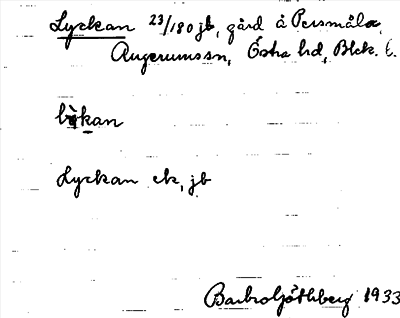 Lyckan 23/180 jb, gård å Persmåla,
Augerumssn, Östra hd, Blek. l.
Lyckan ek, jb
Barbro Göthberg 1933